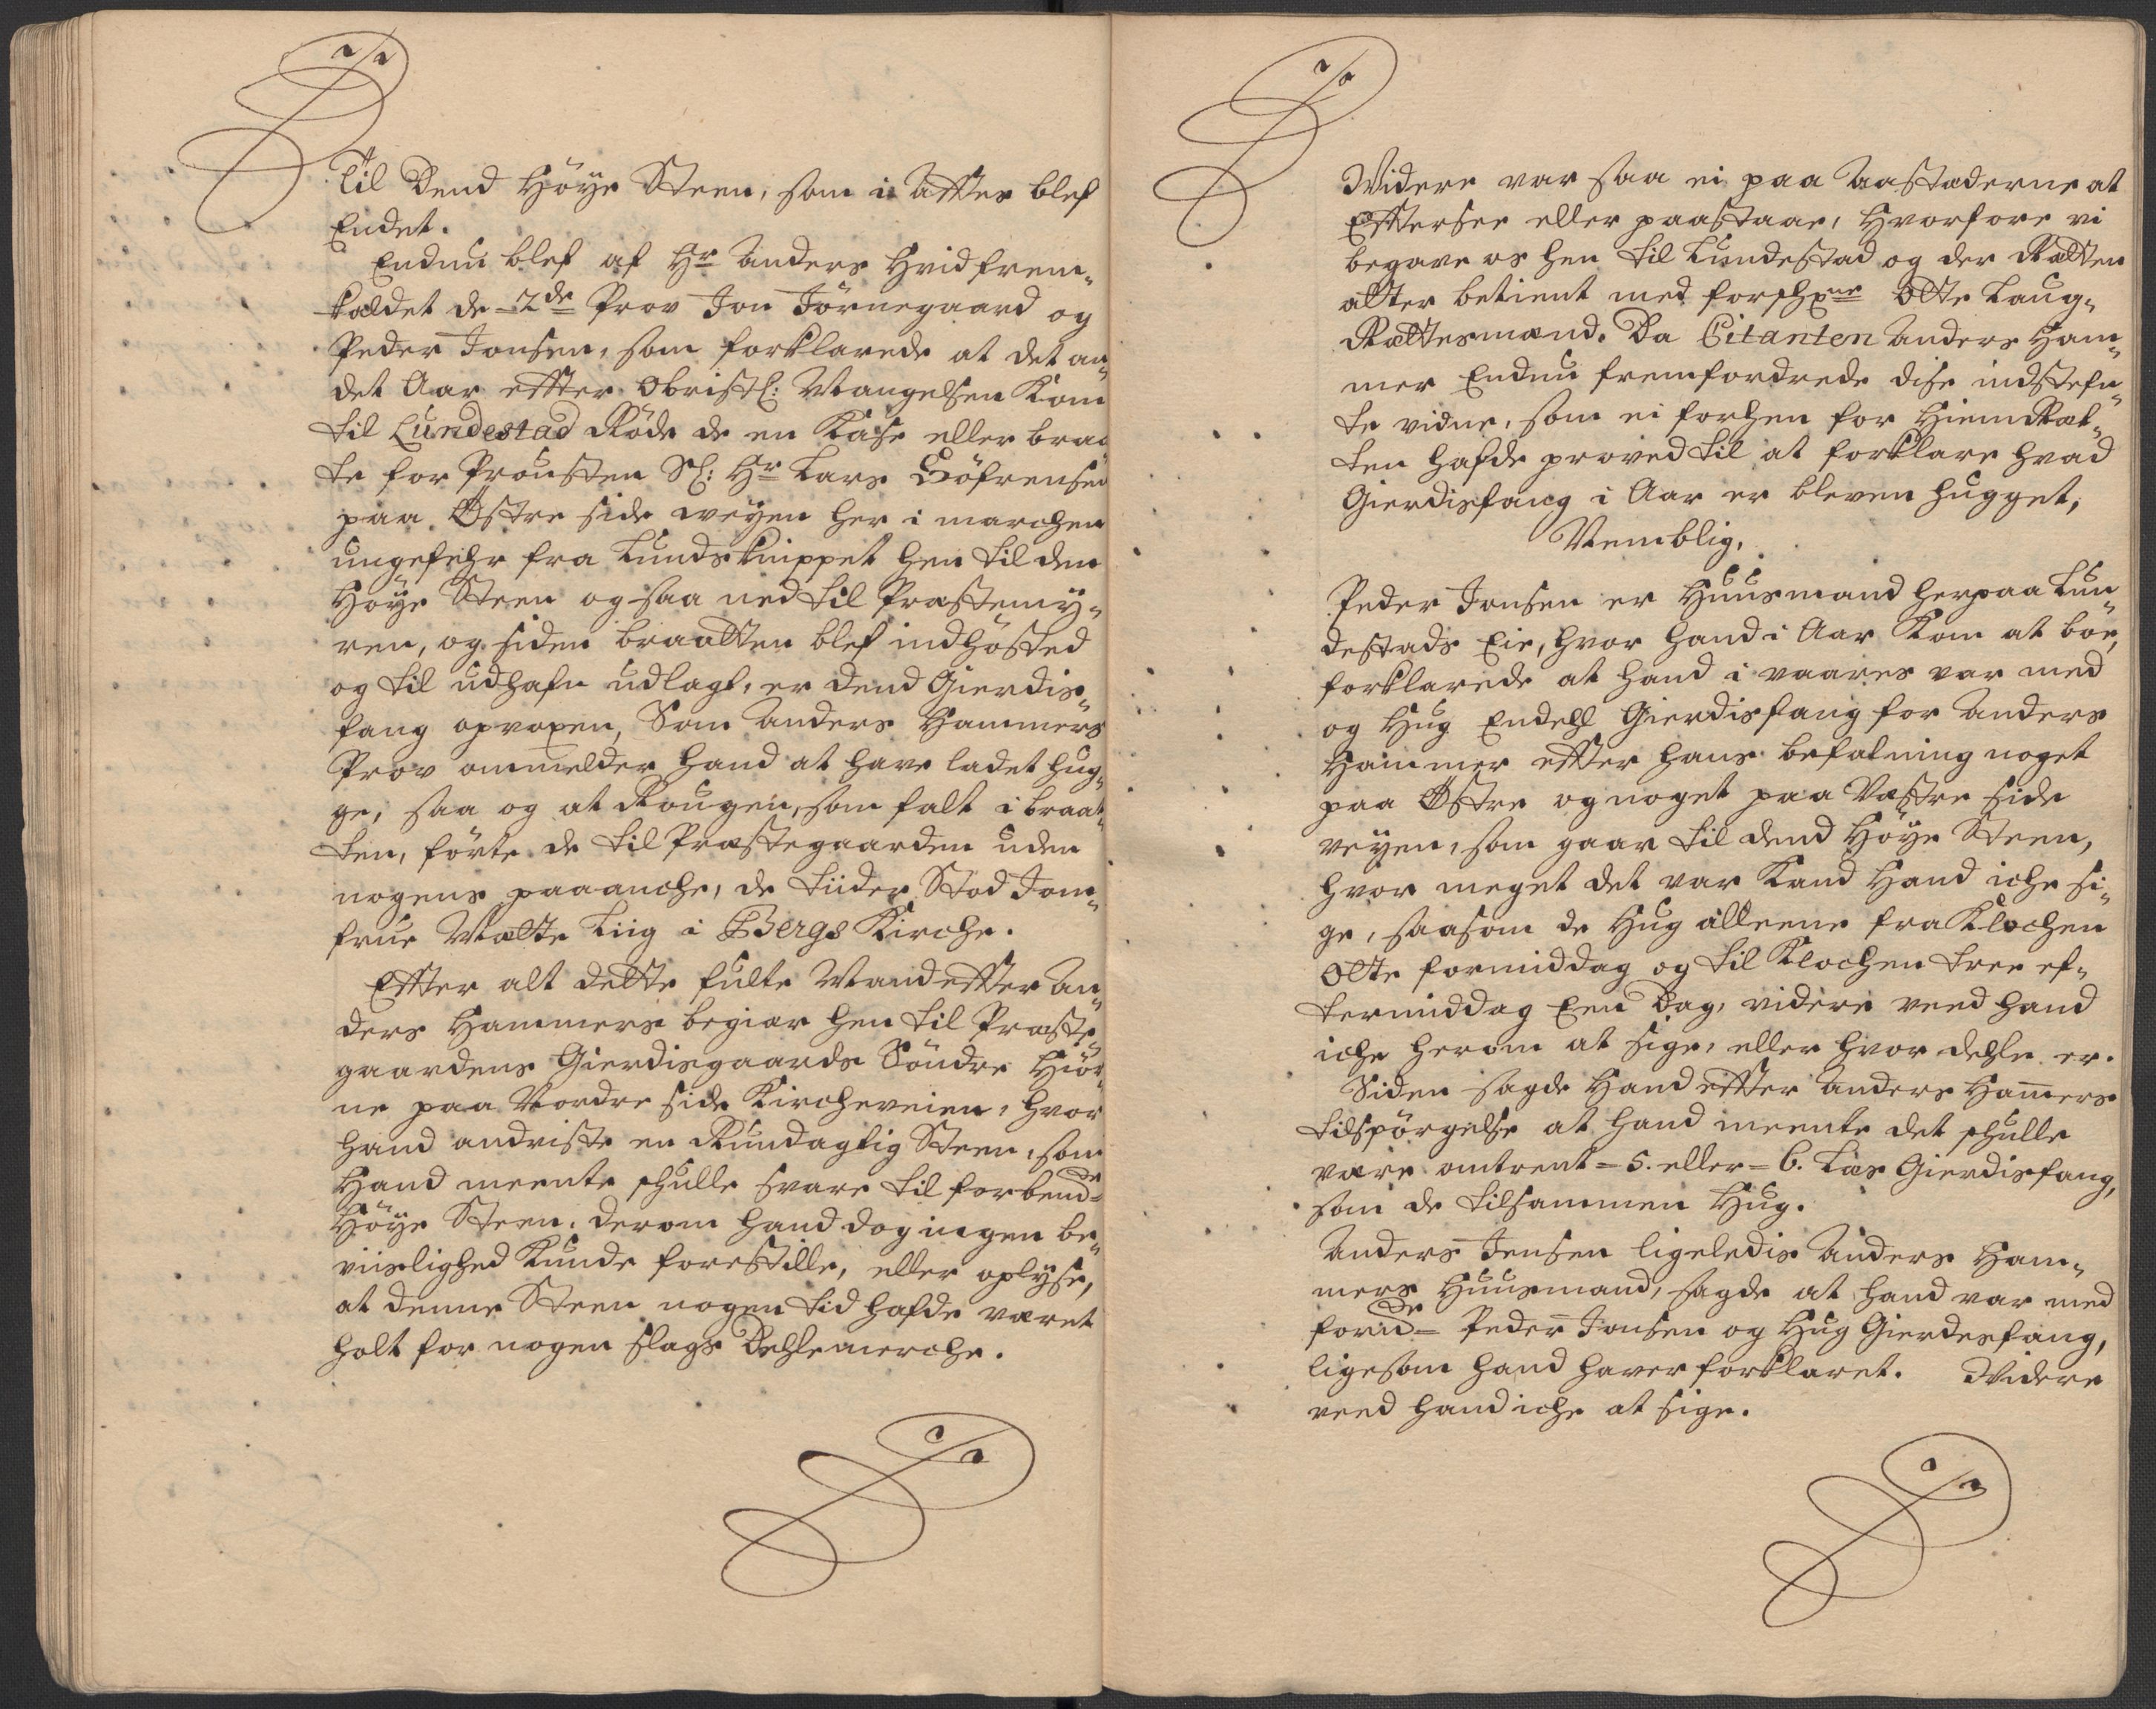 Til Dend Höÿe Steen, som i Aftes blef
Endet.
Endnu blef af Hr Anders Hvid frem„
kaldet de 2de Prov Jon Törnegaard og
Peder Jonsen, som forklarede at det an„
det Aar efter Obristl: Mangelsen Kom
til Lundestad Röde de en Kase eller braa
te for Prousten Sl: Hr Lars Söfrensen
paa Östre side weyen her i marchen
ungefehr fra Lundsknippet hen til den
Höye Steen og saa ned til Præstemÿ„
ren, og siden braatten blef indhösted
og til udhafn udlagt, er dend Gierdis„
fang opvoxen, Som Anders Hammers
Prov ommelder hand at have ladet hug„
ge, saa og at Rougen, som falt i braat„
ten, förte de til Præstegaarden uden
nogens paaanche, de tiider Stod Jom„
frue Malte Liig i Bergs Kirche.
Efter alt dette fulte Mand efter An„
ders Hammers begiær hen til Præste„
gaardens Gierdisgaards Söndre Hiör„
ne paa Nordre side Kircheveien, hvor
hand andviste en Rundagtig Steen, som
Hand meente schulle svare til forbende
Höÿe Steen, derom hand dog ingen be„
viislighed Kunde forestille, eller oplÿse,
at denne Steen nogen tid hafde været
holt for nogen slags Dehlemerche.
Widere var saa ei paa Aastæderne at
Efftersee eller paastaae, hvorfore vi
begave os hen til Lundestad og der Rætten
atter betient med forschrne Otte Laug„
Rættesmænd. Da Citanten Anders Ham„
mer Endnu fremfordrede dise indstefn„
te vidne, som ei forhen for HiemRæt„
ten hafde proved til at forklare hvad
Gierdisfang i Aar er bleven hugget,
Nemblig,
Peder Jonsen er Huusmand herpaa Lun„
destads Eie, hvor hand i Aar Kom at boe,
forklarede at hand i vaares var med
og Hug Endehl Gierdisfang for Anders
Hammer efter hans befalning noget
paa Östre og noget paa Væstre side
veyen, som gaar til dend Höÿe Steen,
hvor meget det var Kand Hand iche si„
ge, saasom de Hug alleene fra Klochen
Otte formiddag og til Klochen tree ef„
termiddag Een Dag, videre veed hand
iche herom at sige, eller hvor dehle er.
Siden sagde Hand efter Anders Hamers
tilspörgelse at hand meente det schulle
være omtrent 5. eller 6. Læs Gierdisfang,
som de tilsammen Hug.
Anders Jensen ligeledis Anders Ham„
mers Huusmand, sagde at hand var med
fornde Peder Jonsen og Hug Gierdesfang,
ligesom hand haver forklaret. Widere
veed hand iche at sige.